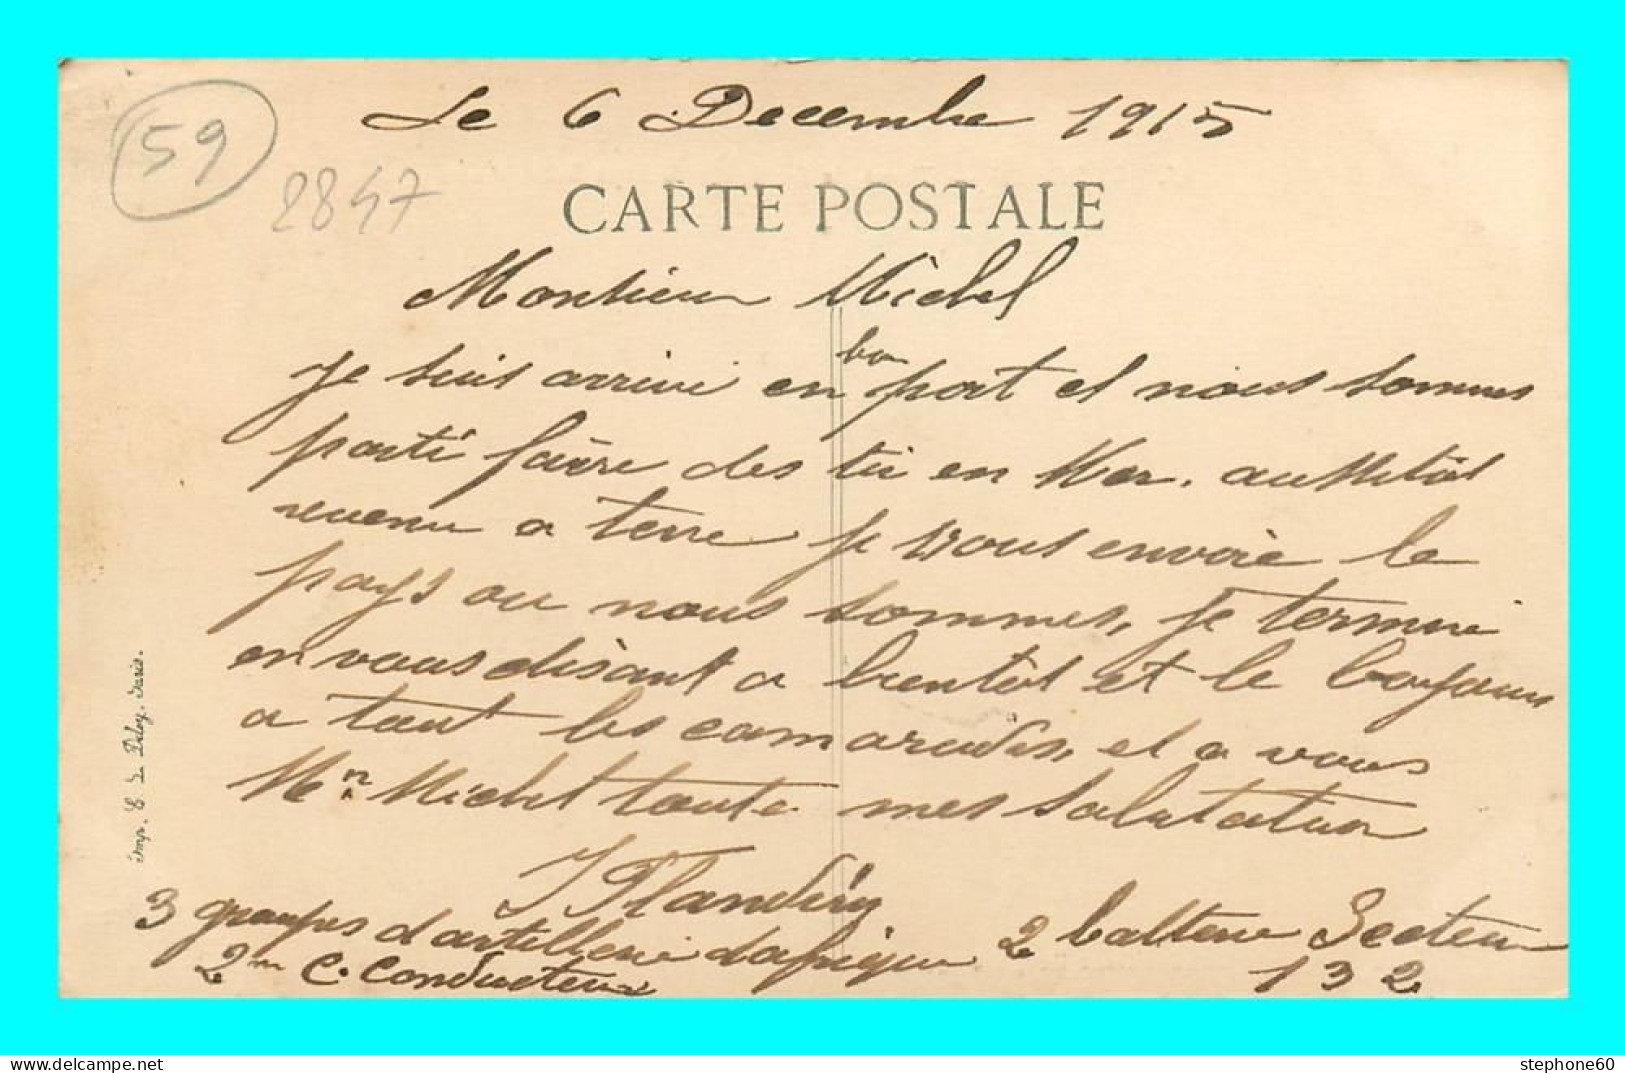 59
2847
Le 6 Decembre 1915
CARTE POSTALE
Monsieur Michel
bon
Je suis arrivé en port et nous sommes
parti faire des tir en Mer. aussitôt
revenu a terre je vous envoie le
pays ou nous sommes, je termine
en vous disant a bientot et le
a tout les camarades, et a vous
Mr Michel toute mes salutation
J Flandrin
3 groupes d artillerie dafrique 2 batterie Secteur
2me C. Conducteur 132
imp. E. Le Deley, Paris.
stephone60